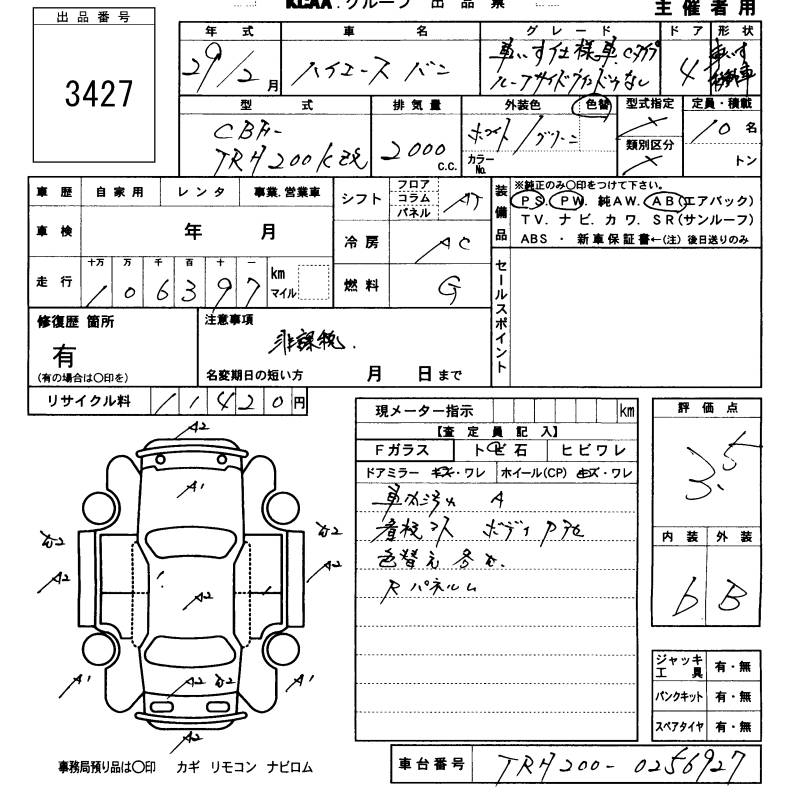 KCAA.グループ 出品票
主催者用
出品番号
3427
年式 車名 グレード ドア 形状
29/2月 ハイエース バン 車いす仕様車Cタイプ 4 車いす
ルーフサイドウインドウなし 移動車
型式 排気量 外装色 色替 型式指定 定員・積載
CBF- ホワイト/グリーン 10名
TRH200K改 2000 C.C. カラーNo. 類別区分 トン
車歴 自家用 レンタ 事業.営業車
車検 年 月
走行 十万 万 千 百 十 一
106397 km マイル
シフト フロア コラム パネル AT
冷房 AC
燃料 G
装備品
※純正のみ○印をつけて下さい。
PS. PW. 純AW. AB(エアバック)
TV. ナビ. カワ. SR(サンルーフ)
ABS ・ 新車保証書←(注) 後日送りのみ
セールスポイント
修復歴 箇所
有
(有の場合は○印を)
注意事項
非課税.
名変期日の短い方 月 日まで
リサイクル料 11420円
現メーター指示 km
【査定員記入】
Fガラス トビ石 ヒビワレ
ドアミラー キズ・ワレ ホイール(CP) キズ・ワレ
A
ボディ
色替え
Rパネルム
評価点
3.5
内装 外装
b B
ジャッキ工具 有・無
パンクキット 有・無
スペアタイヤ 有・無
A2
A1
A2
A2
A2
A2
A1
A1
A2
事務局預り品は○印 カギ リモコン ナビロム
車台番号 TRH200-0256927